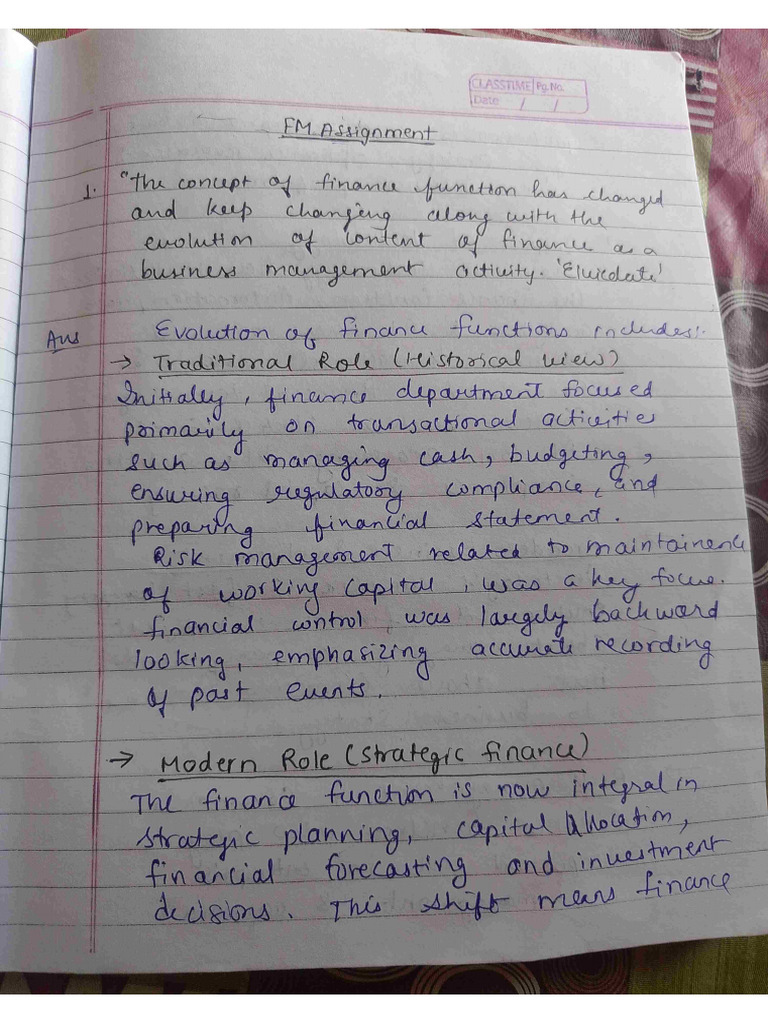 CLASSTIME Pg. No.
Date / /
FM Assignment
1. "The concept of finance function has changed
and keep changing along with the
evolution of content of finance as a
business management activity. 'Elucidate'
Ans Evolution of finance functions includes:
→ Traditional Role (Historical view)
Initially, finance department focused
primarily on transactional activities
such as managing cash, budgeting,
ensuring regulatory compliance, and
preparing financial statement.
Risk management related to maintainence
of working capital, was a key focus.
financial control, was largely backward
looking, emphasizing accurate recording
of past events.
→ Modern Role (Strategic finance)
The finance function is now integral in
strategic planning, capital allocation,
financial forecasting and investment
decisions. This shift means finance